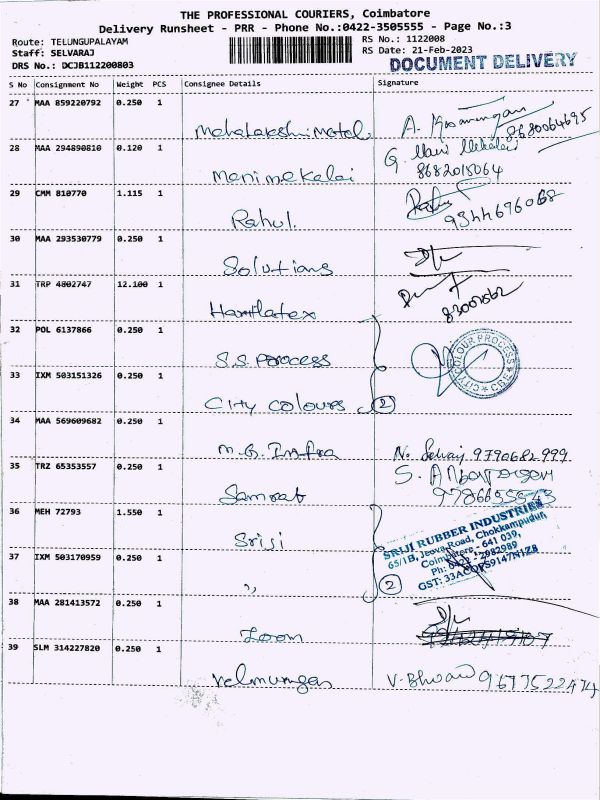 THE PROFESSIONAL COURIERS, Coimbatore
Delivery Runsheet - PRR - Phone No.:0422-3505555 - Page No.:3
Route: TELUNGUPALAYAM
RS No.: 1122008
Staff: SELVARAJ
RS Date: 21-Feb-2023
DRS No.: DCJB112200803
DOCUMENT DELIVERY
S No Consignment No Weight PCS Consignee Details Signature
27 MAA 859220792 0.250 1
Mahalakshmi Metal A.
8680064695
28 MAA 294890810 0.120 1
G. Mani Mekalai
Manimekalai 8682015064
29 CMM 810770 1.115 1
Rahul. 9344696068
30 MAA 293530779 0.250 1
Solutions
31 TRP 4802747 12.100 1
32 POL 6137866 0.250 1
S.S. Process
CITY COLOUR PROCESS
CBE
33 IXM 503151326 0.250 1
City Colours 2
34 MAA 569609682 0.250 1
M.G. Infra N. Selvaj 9790682999
35 TRZ 65353557 0.250 1
S.
Samrat
36 MEH 72793 1.550 1
Sriji
SRIJI RUBBER INDUSTRIES
65/1B, Jeeva Road, Chokkampudur,
Coimbatore - 641 039,
Ph: 0422 - 2982989
37 IXM 503170959 0.250 1
GST: 33ACOFS9147N1Z8
" 2
38 MAA 281413572 0.250 1
Zoom
39 SLM 314227820 0.250 1
Velmurugan V-